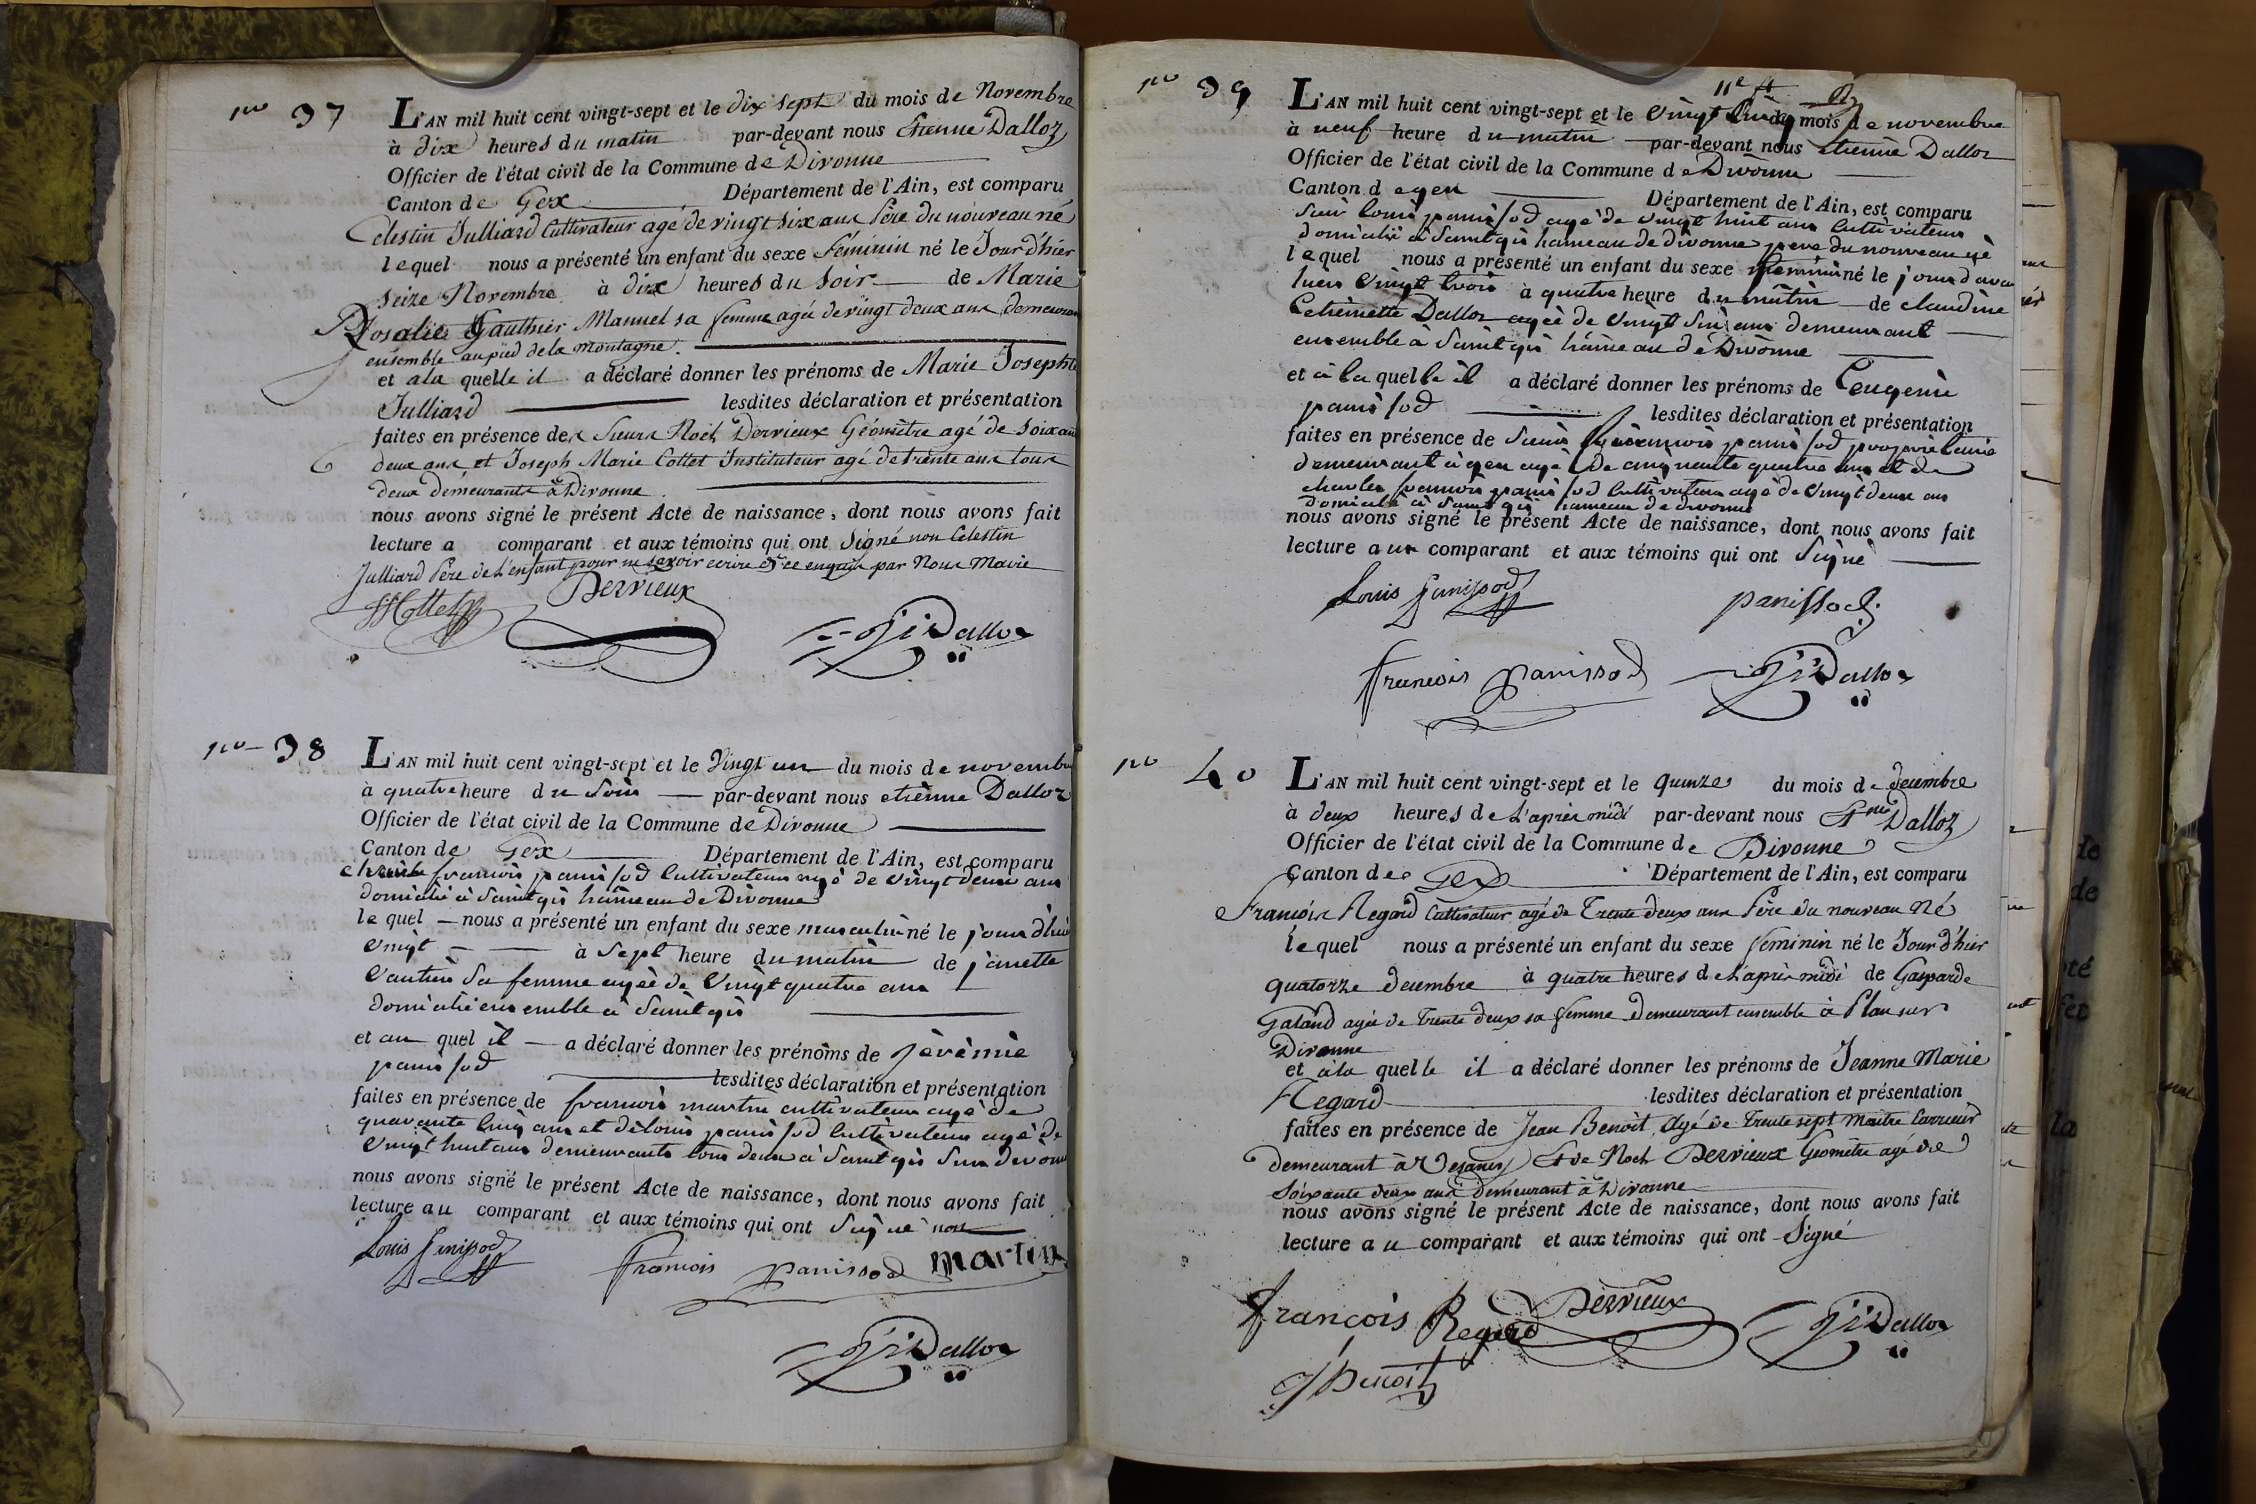 no 37
L'AN mil huit cent vingt-sept et le dix sept du mois de Novembre
à dix heures du matin par-devant nous Etienne Dalloz
Officier de l'état civil de la Commune de Divonne
Canton de Gex Département de l'Ain, est comparu
Celestin Julliard Cultivateur agé de vingt six ans Père du nouveau né
lequel nous a présenté un enfant du sexe féminin né le Jour d'hier
seize Novembre à dix heures du soir de Marie
Rosalie Gauthier Manuel sa femme agée de vingt deux ans demeurant
ensemble au pied de la montagne.
et a la quelle il a déclaré donner les prénoms de Marie Josephte
Julliard lesdites déclaration et présentation
faites en présence des Sieurs Noël Dervieux Géomètre agé de soixante
deux ans et Joseph Marie Cottet Instituteur agé de trente ans tous
deux demeurants à Divonne.
nous avons signé le présent Acte de naissance, dont nous avons fait
lecture a comparant et aux témoins qui ont signé non Celestin
Julliard Père de l'enfant pour ne savoir ecrire de ce enquis par Nous Mairie
JMCottet Dervieux
Dalloz
no 38
L'AN mil huit cent vingt-sept et le vingt un du mois de novembre
à quatre heure du soir par-devant nous etienne Dalloz
Officier de l'état civil de la Commune de Divonne
Canton de Gex Département de l'Ain, est comparu
françois panissod cultivateur agé de vingt deux ans
domicilié à Saint gix hameau de Divonne
le quel nous a présenté un enfant du sexe masculin né le jour d'hier
vingt à sept heure du matin de janette
vautier sa femme agée de vingt quatre ans
domicilié ensemble à Saint gix
et au quel il a déclaré donner les prénoms de jérémie
panissod lesdites déclaration et présentation
faites en présence de françois martin cultivateur agé de
quarante cinq ans et de louis panissod cultivateur agé de
vingt huit ans demeurants tous deux à Saint gix sur divonne
nous avons signé le présent Acte de naissance, dont nous avons fait
lecture au comparant et aux témoins qui ont signé
Louis panissod françois panissod martin
Dalloz
no 39
L'AN mil huit cent vingt-sept et le vingt du mois de novembre
à neuf heure du matin par-devant nous etienne Dalloz
Officier de l'état civil de la Commune de Divonne
Canton de gex Département de l'Ain, est comparu
Sieur louis panissod agé de vingt huit ans cultivateur
domicilié à Saint gix hameau de divonne pere du nouveau né
lequel nous a présenté un enfant du sexe feminin né le jour d'avant
hier vingt trois à quatre heure du matin de claudine
Dalloz agée de vingt six ans demeurant
ensemble à Saint gix hameau de Divonne
et à la quelle il a déclaré donner les prénoms de Eugenie
panissod lesdites déclaration et présentation
faites en présence de Sieurs françois panissod proprietaire
demeurant à gex agé de cinquante quatre ans et de
charles françois panissod cultivateur agé de vingt deux ans
domicilié à Saint gix hameau de divonne
nous avons signé le présent Acte de naissance, dont nous avons fait
lecture au comparant et aux témoins qui ont signé
Louis panissod panissod
françois panissod Dalloz
no 40
L'AN mil huit cent vingt-sept et le quinze du mois de decembre
à deux heures de l'après midi par-devant nous Etne Dalloz
Officier de l'état civil de la Commune de Divonne
Canton de Gex Département de l'Ain, est comparu
François Regard Cultivateur agé de Trente deux ans Père du nouveau Né
lequel nous a présenté un enfant du sexe féminin né le Jour d'hier
quatorze decembre à quatre heures de l'après midi de Gasparde
Galand agée de Trente deux sa femme demeurant ensemble à Plan sur
Divonne
et à la quelle il a déclaré donner les prénoms de Jeanne Marie
Regard lesdites déclaration et présentation
faites en présence de Jean Benoit agé de Trente sept Maitre Carrieur
demeurant à Vesancy Et de Noel Dervieux Géomètre agé de
soixante deux ans demeurant à Divonne
nous avons signé le présent Acte de naissance, dont nous avons fait
lecture au comparant et aux témoins qui ont signé
françois Regard Dervieux Dalloz
J Benoit